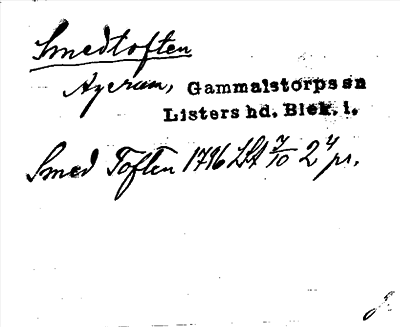 Smedtoften
Agerum, Gammalstorps sn
Listers hd. Blek. l.
Smed Toften 1796 LSA 7/10 2 4 pr.